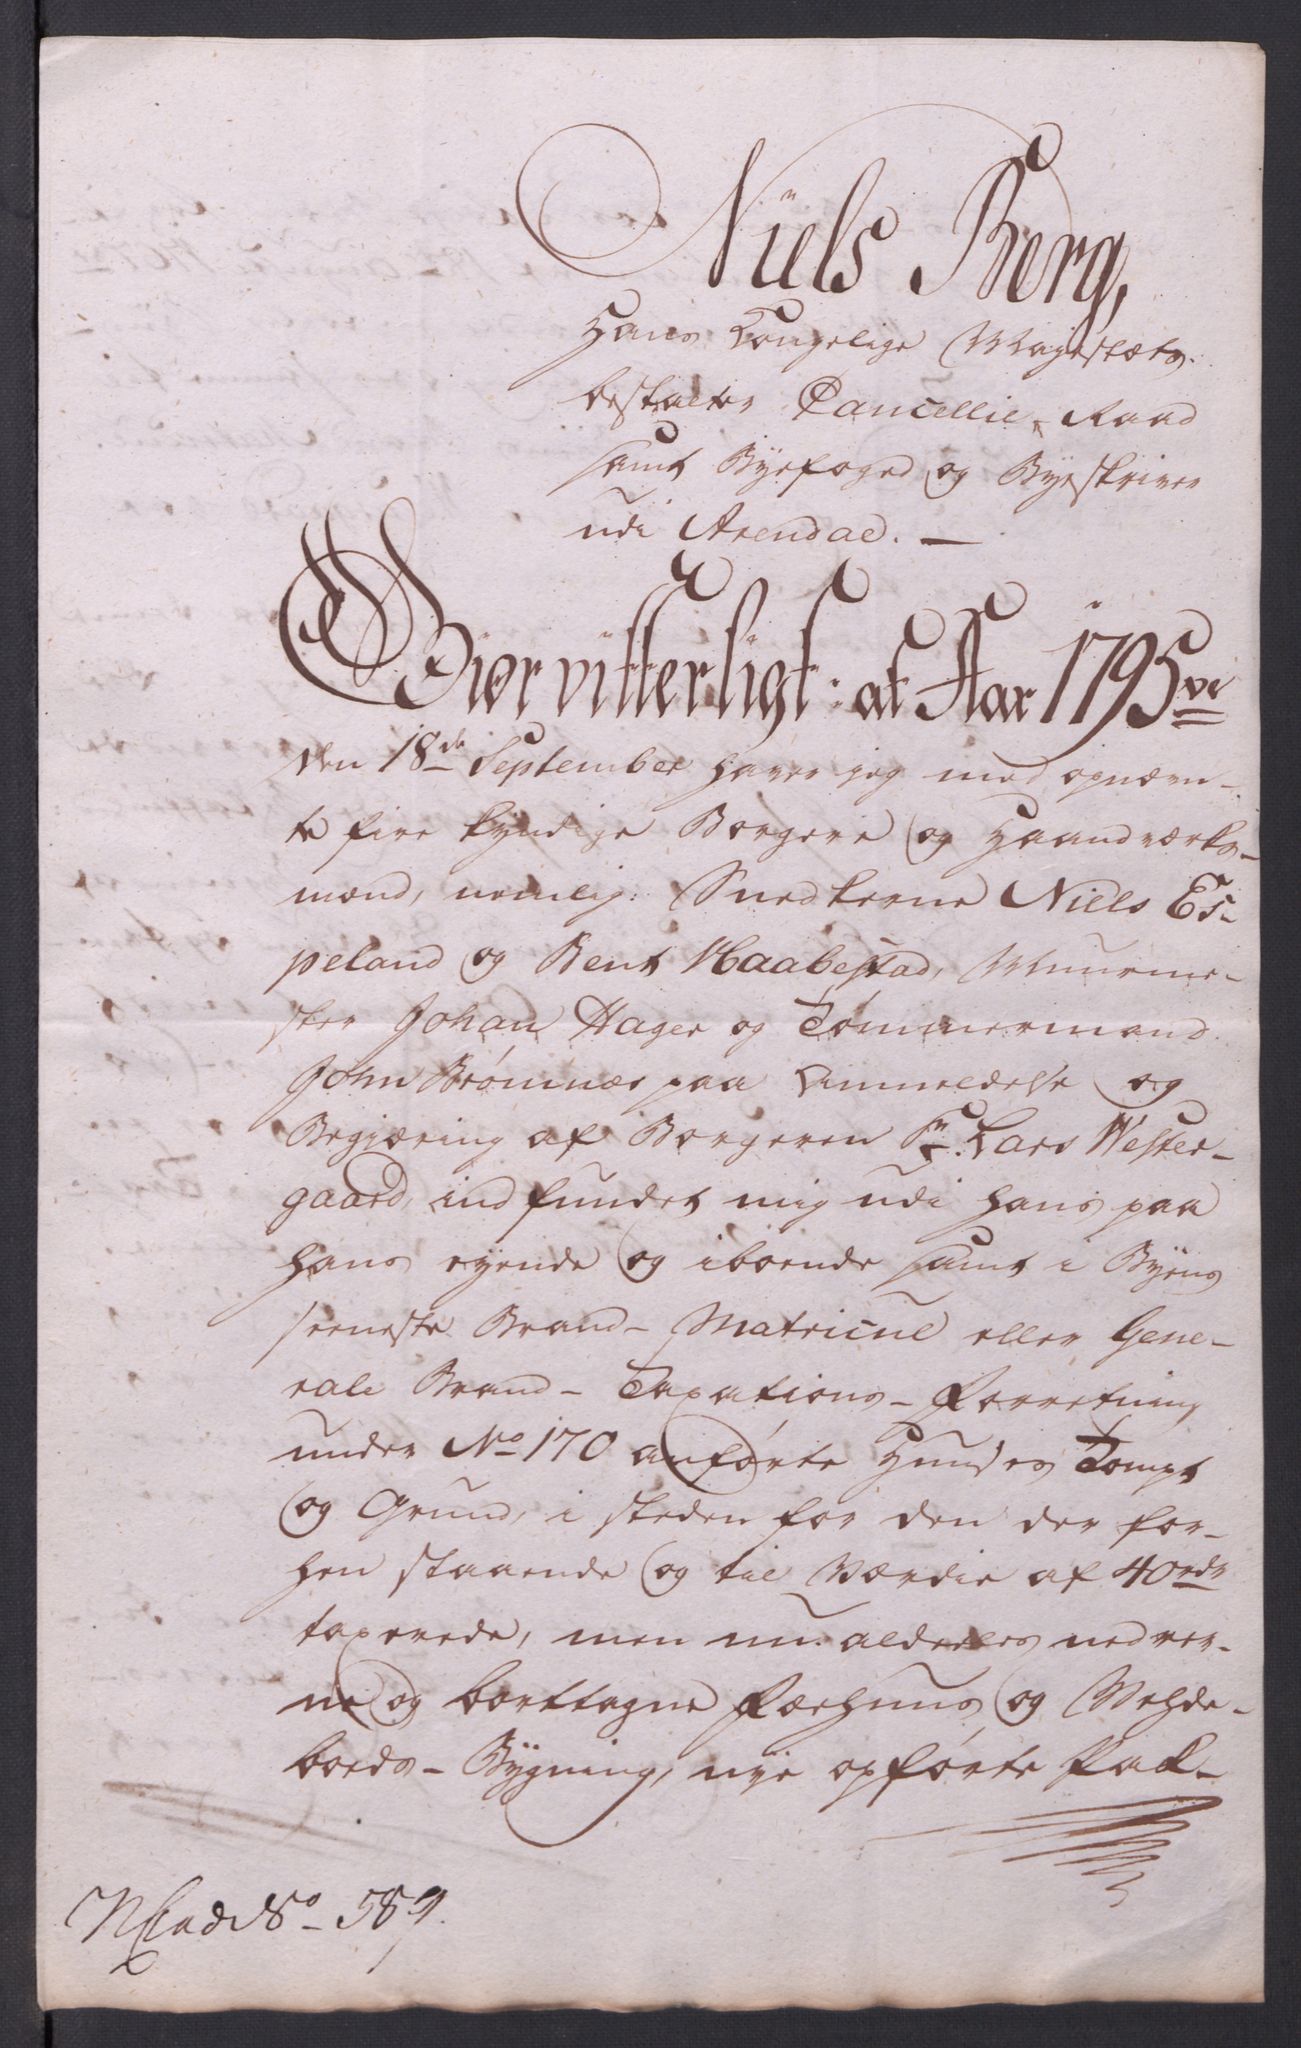 Niels Berg,
Hans Kongelige Mayestæts
bestalter Cancellie-Raad
samt Byefoged og Byeskriver
udi Arendal. —
Giør vitterligt: at Aar 1795ve
den 18de September haver jeg med opnævn-
te fire kyndige Borgere og Haandværks-
mænd, nemlig: Snedkerne Niels Es-
peland og Bent Haabestad, Muurme-
ster Johan Hager og Tømmermand
John Brømnæs paa Anmeldelse og
Begjæring af Borgeren Sr. Lars Wester-
gaard, indfundet mig udi hans paa
hans eyende og iboende samt i Byens
seeneste Brand-Matricul eller Gene-
rale Brand-Taxations-Forretning
under No 170 anførte Huuses Tompt
og Grund, i steden for den der for-
hen staaende og til Værdie af 40 rdr
taxerede, men nu aldeeles nedrev-
ne og borttagne Færhuus og
boeds-Bygning, nye opførte Pak-
No 589.